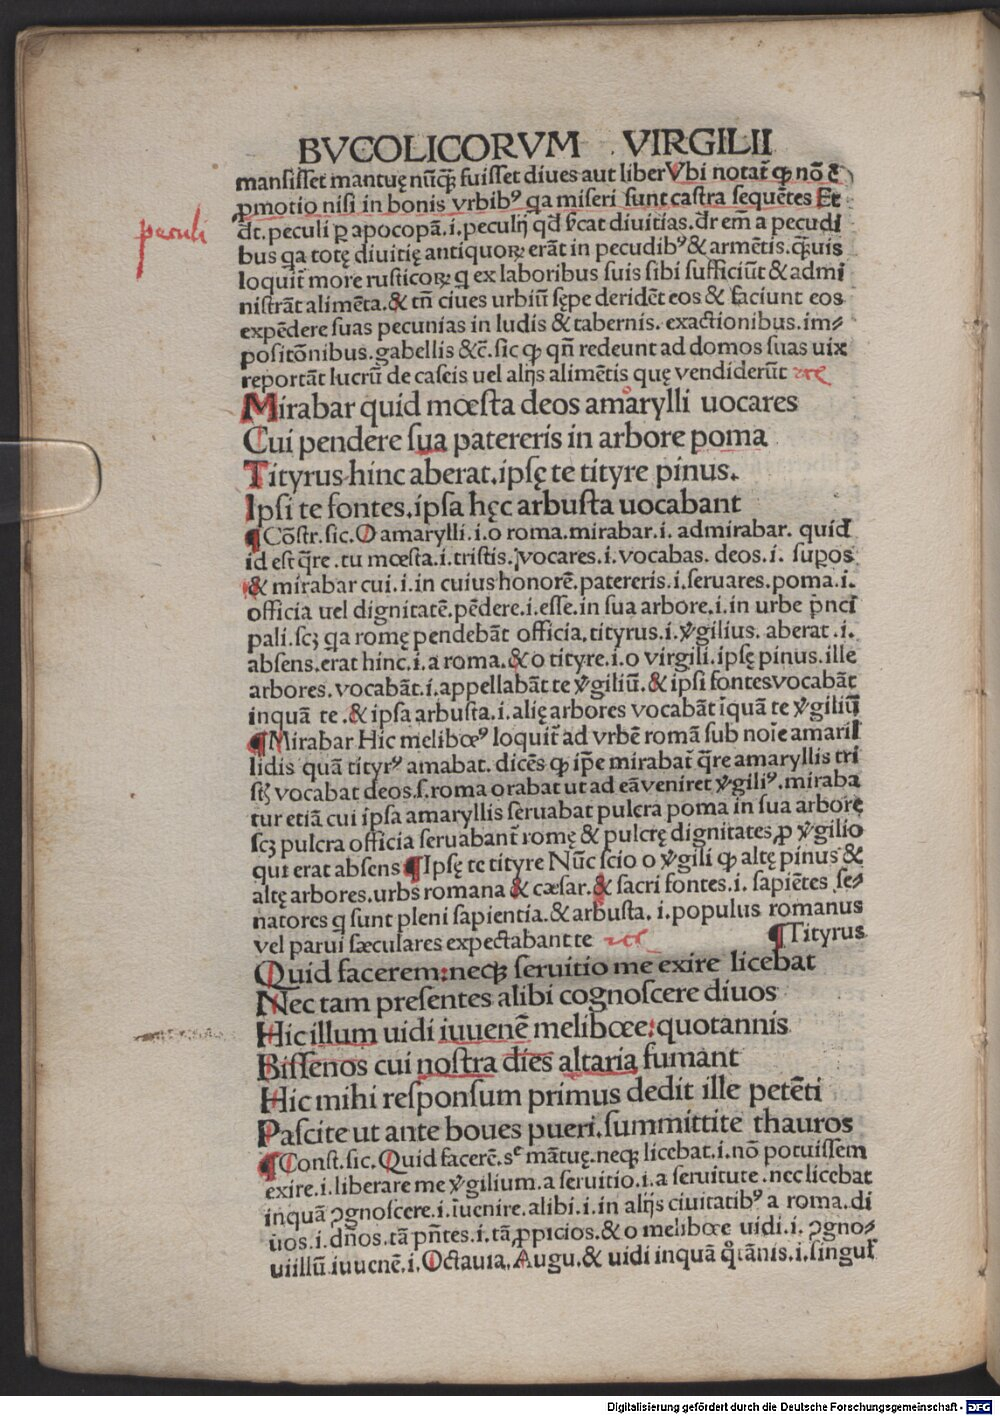 BVCOLICORVM VIRGILII
mansisset mantuę nūq̄ꝫ fuisset diues aut liber Vbi notat̄ ꝙ nō ē
ꝓmotio nisi in bonis vrbibꝰ qa miseri sunt castra sequētes Et
peculi
dt̄. peculi ꝑ apocopā.i. peculij qđ sc̄at diuitias. dr̄ em̄ a pecudi
bus qa totę diuitię antiquoꝝ erāt in pecudibꝰ & armētis. q̄ꝫuis
loquit̄ more rusticoꝝ q ex laboribus suis sibi sufficiūt & admi
nistrāt alimēta. & tn̄ ciues urbiū sępe deridēt eos & faciunt eos
expēdere suas pecunias in ludis & tabernis. exactionibus. im⸗
positōnibus. gabellis &c̄. sic ꝙ qn̄ redeunt ad domos suas uix
reportāt lucrū de caseis uel alijs alimētis quę vendiderūt
Mirabar quid mœsta deos amarylli uocares
Cui pendere sua patereris in arbore poma
Tityrus hinc aberat. ipsę te tityre pinus.
Ipsi te fontes. ipsa hęc arbusta uocabant
¶ Cōstr. sic. O amarylli.i. o roma. mirabar.i. admirabar. quid
id est q̄re. tu mœsta.i. tristis. vocares.i. vocabas. deos.i. suꝑos
& mirabar cui.i. in cuius honorē. patereris.i. seruares. poma.i.
officia uel dignitatē. pēdere.i. esse. in sua arbore.i. in urbe p̄nci
pali. scꝫ qa romę pendebāt officia. tityrus.i. v̄gilius. aberat.i.
absens. erat hinc.i. a roma. & o tityre.i. o virgili. ipsę pinus. ille
arbores. vocabāt.i. appellabāt te v̄giliū. & ipsi fontes vocabāt
inquā te. & ipsa arbusta.i. alię arbores vocabāt īquā te v̄giliū
¶ Mirabar Hic melibœꝰ loquit̄ ad vrbē romā sub noīe amaril
lidis quā tityrꝰ amabat. dicēs ꝙ ip̄e mirabat̄ q̄re amaryllis tri
stꝭ vocabat deos. s. roma orabat ut ad eā veniret v̄giliꝰ. miraba
tur etiā cui ipsa amaryllis seruabat pulcra poma in sua arbore
scꝫ pulcra officia seruabant̄ romę & pulcrę dignitates ꝓ v̄gilio
qui erat absens ¶ Ipsę te tityre Nūc scio o v̄gili ꝙ altę pinus &
altę arbores. urbs romana & cæsar. & sacri fontes.i. sapiētes se⸗
natores q sunt pleni sapientia. & arbusta.i. populus romanus
vel parui sæculares expectabant te ¶ Tityrus
Quid facerem: necꝫ seruitio me exire licebat
Nec tam presentes alibi cognoscere diuos
Hic illum uidi iuuenē melibœe: quotannis
Bissenos cui nostra dies altaria fumant
Hic mihi responsum primus dedit ille petēti
Pascite ut ante boues pueri. summittite thauros
¶ Const. sic. Quid facerē. sᶜ mātuę. neqꝫ licebat.i. nō potuissem
exire.i. liberare me v̄gilium. a seruitio.i. a seruitute. nec licebat
inquā ꝯgnoscere.i. iuenire. alibi.i. in alijs ciuitatibꝰ a roma. di
uos.i. dn̄os. tā pn̄tes.i. tā ꝓpicios. & o melibœe uidi.i. ꝯgno⸗
ui illū iuuenē.i. Octauia. Augu. & uidi inquā qͦtānis.i. singul̄
Digitalisierung gefördert durch die Deutsche Forschungsgemeinschaft - DFG